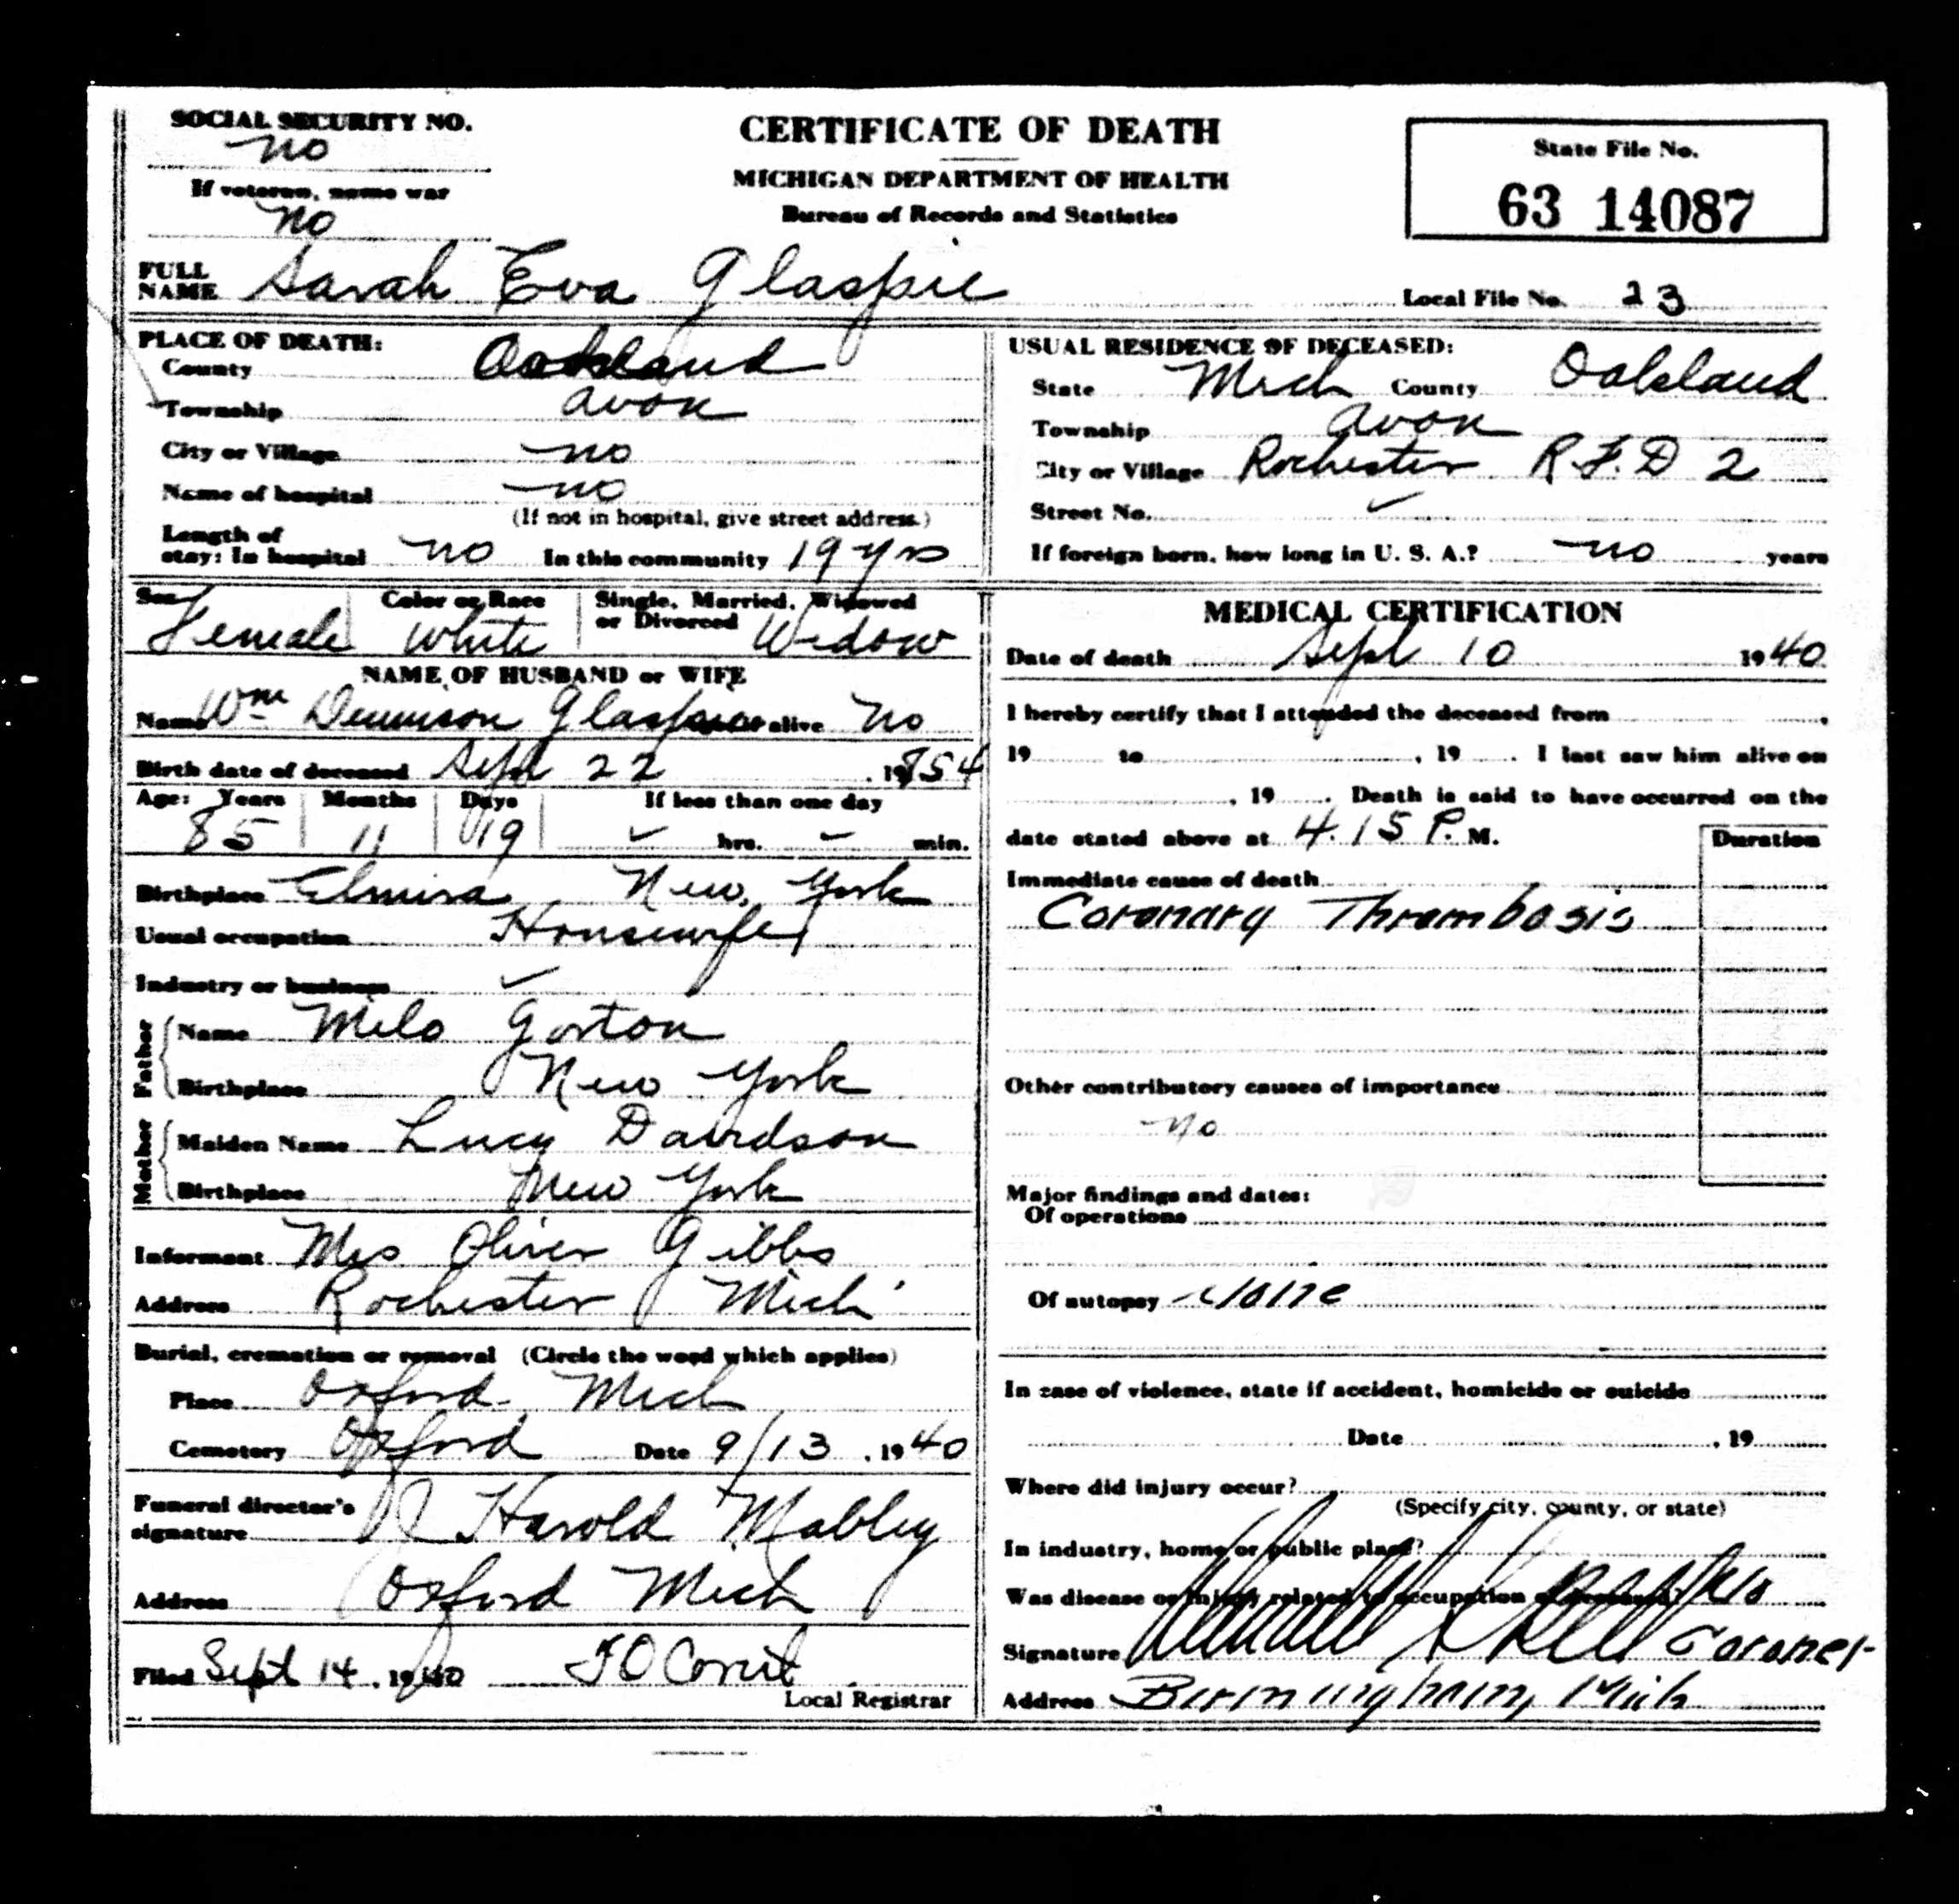 SOCIAL SECURITY NO.
no
If veteran, name war
no
CERTIFICATE OF DEATH
MICHIGAN DEPARTMENT OF HEALTH
Bureau of Records and Statistics
State File No.
63 14087
FULL NAME Sarah Eva Glaspie
Local File No. 23
PLACE OF DEATH:
County Oakland
Township Avon
City or Village no
Name of hospital no
(If not in hospital, give street address.)
Length of stay: In hospital no In this community 19 yrs
USUAL RESIDENCE OF DECEASED:
State Mich County Oakland
Township Avon
City or Village Rochester R.F.D 2
Street No. ✓
If foreign born, how long in U. S. A.? no years
Sex Female Color or Race White Single, Married, Widowed or Divorced Widow
NAME OF HUSBAND or WIFE
Name Wm Dennison Glaspie alive No
Birth date of deceased Sept 22, 1854
Age: Years 85 Months 11 Days 19 If less than one day ✓ hrs. ✓ min.
Birthplace Elmira New York
Usual occupation Housewife
Industry or business ✓
Father
Name Milo Gorton
Birthplace New York
Mother
Maiden Name Lucy Davidson
Birthplace New York
Informant Mrs Oliver Gibbs
Address Rochester Mich
Burial, cremation or removal (Circle the word which applies)
Place Oxford Mich
Cemetery Oxford Date 9/13, 1940
Funeral director's signature Harold Mabley
Address Oxford Mich
Filed Sept 14, 1940
Local Registrar
MEDICAL CERTIFICATION
Date of death Sept 10 1940
I hereby certify that I attended the deceased from ,
19 to , 19 . I last saw him alive on
, 19 . Death is said to have occurred on the
date stated above at 4.15 P. M.
Duration
Immediate cause of death
Coronary Thrombosis
Other contributory causes of importance
No
Major findings and dates:
Of operations
Of autopsy None
In case of violence, state if accident, homicide or suicide
Date , 19
Where did injury occur?
(Specify city, county, or state)
In industry, home or public place?
Was disease or injury related to occupation of deceased? No
Signature Coroner
Address Birmingham, Mich